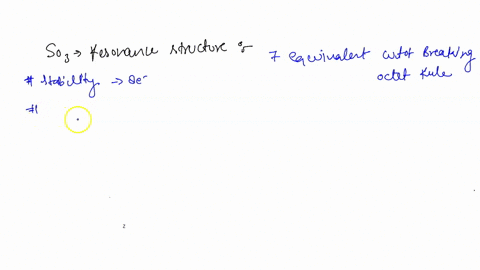 So3 → Resonance structure of
7 equivalent cutof Breaking
octet Rule
# Stability → 8e-
#